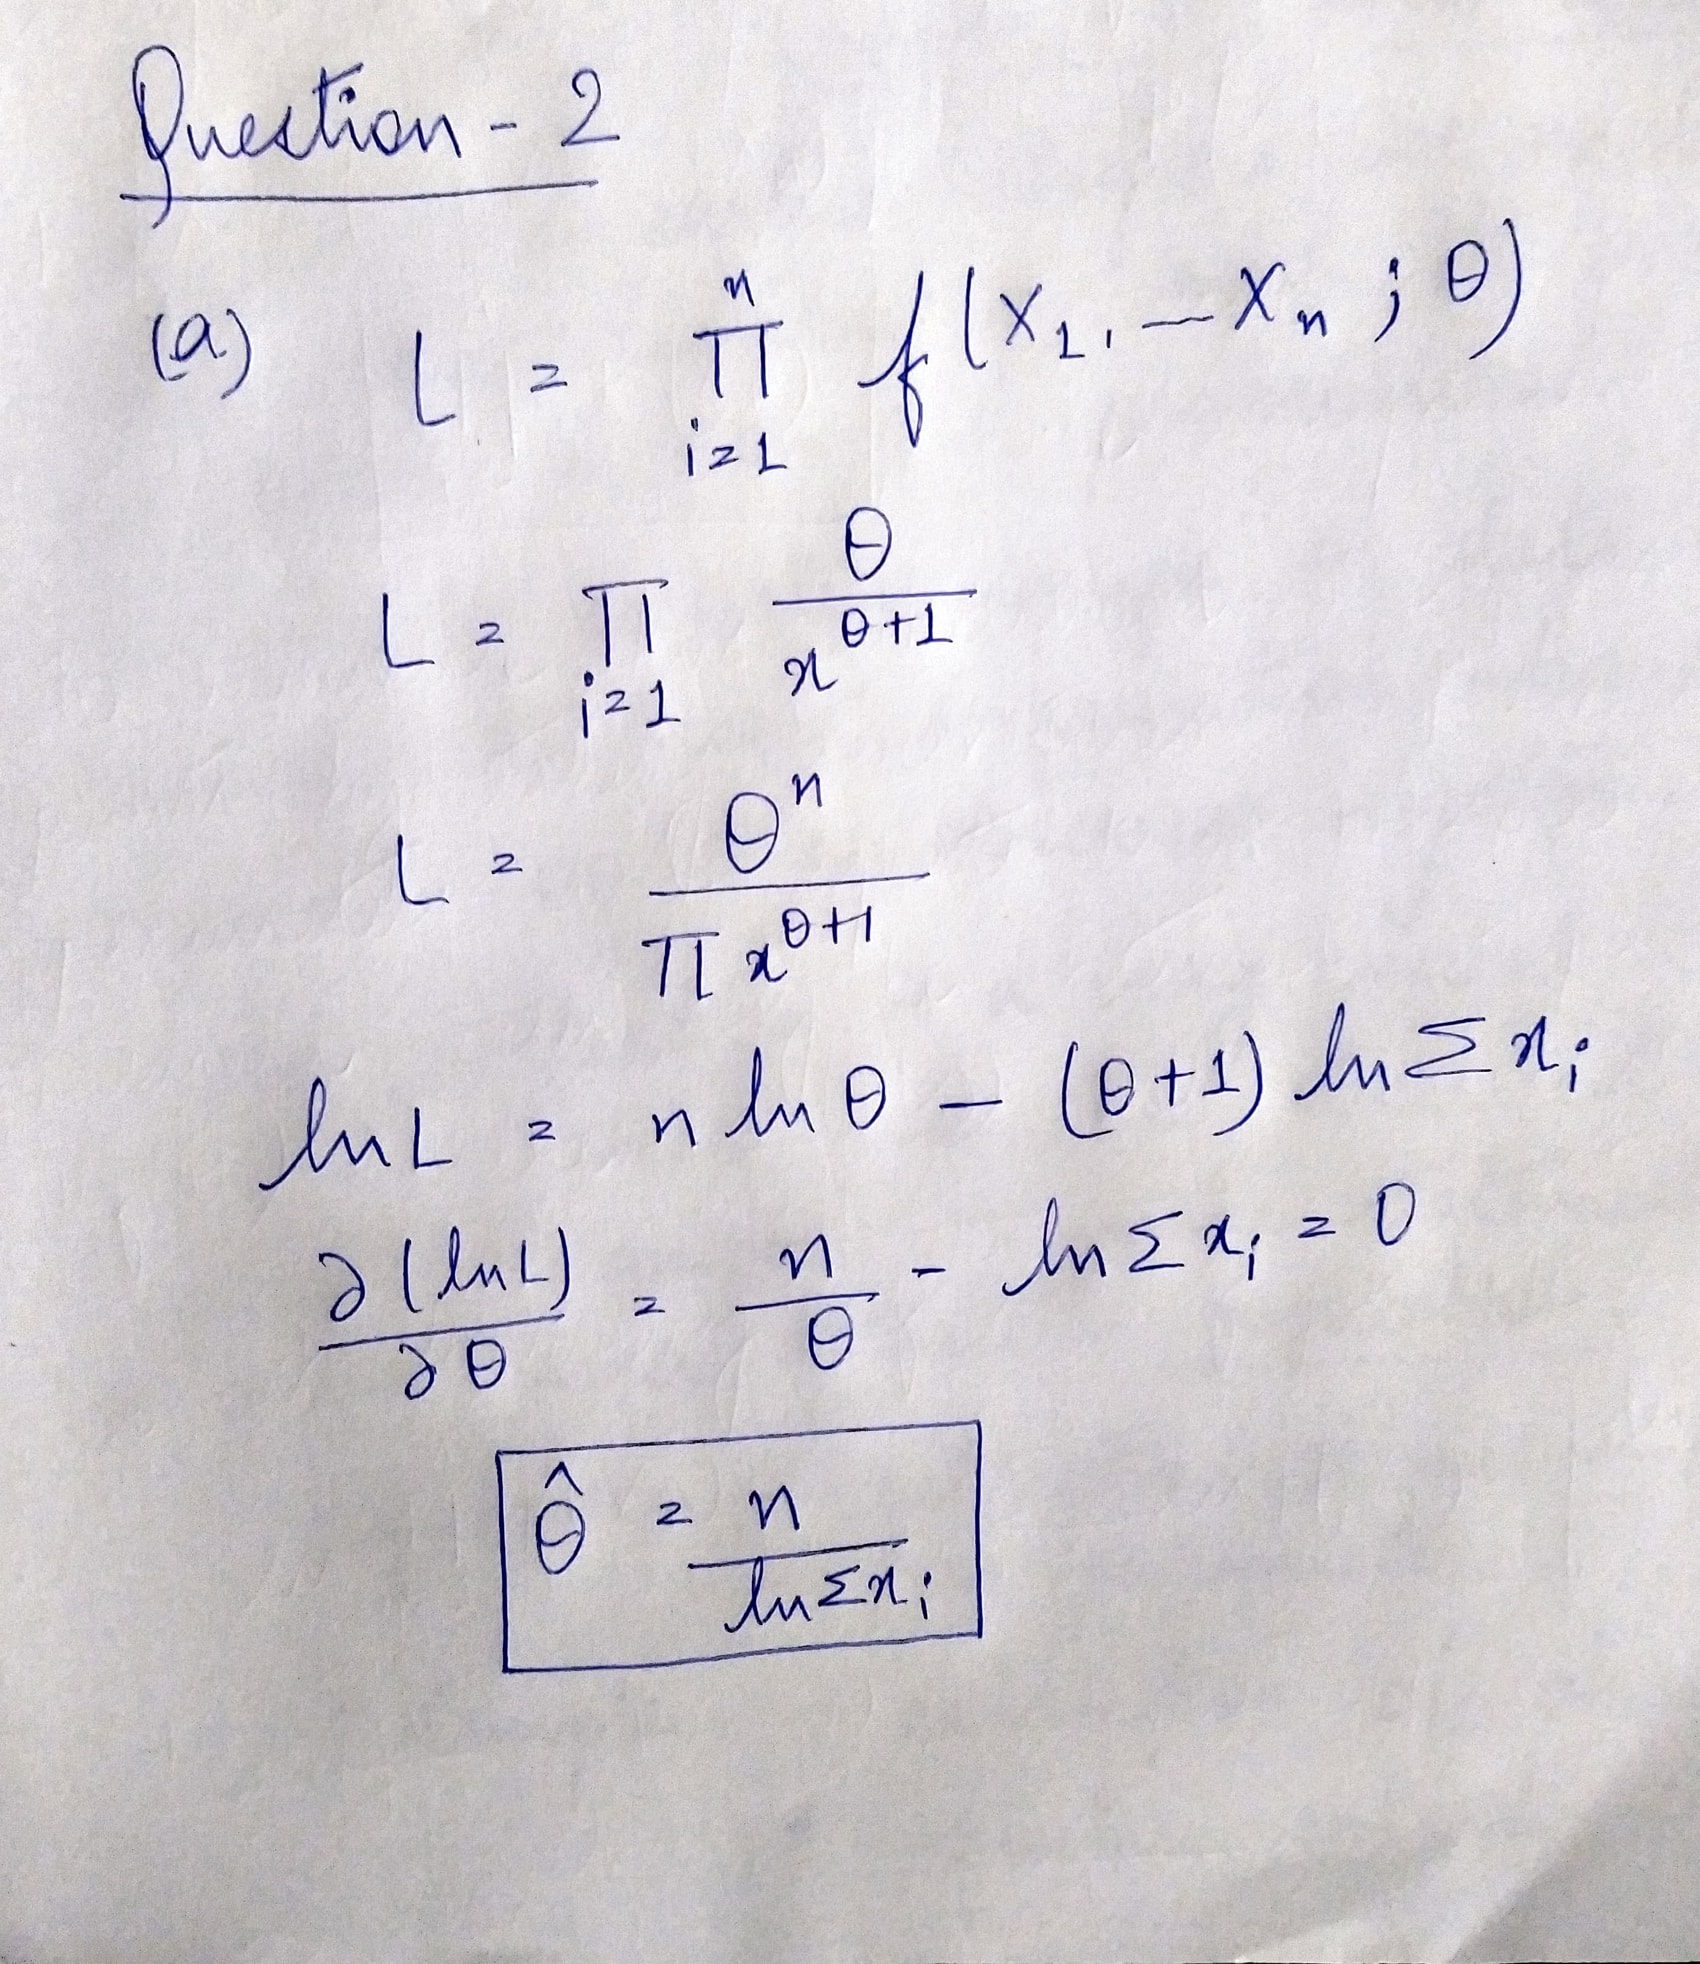 Question - 2
(a) L = n∏i=1 f(X1, — Xn ; θ)
L = ∏i=1 θ / x^θ+1
L = θ^n / ∏ x^θ+1
ln L = n ln θ – (θ+1) ln Σ xi
∂(ln L) / ∂θ = n / θ - ln Σ xi = 0
θ̂ = n / ln Σ xi